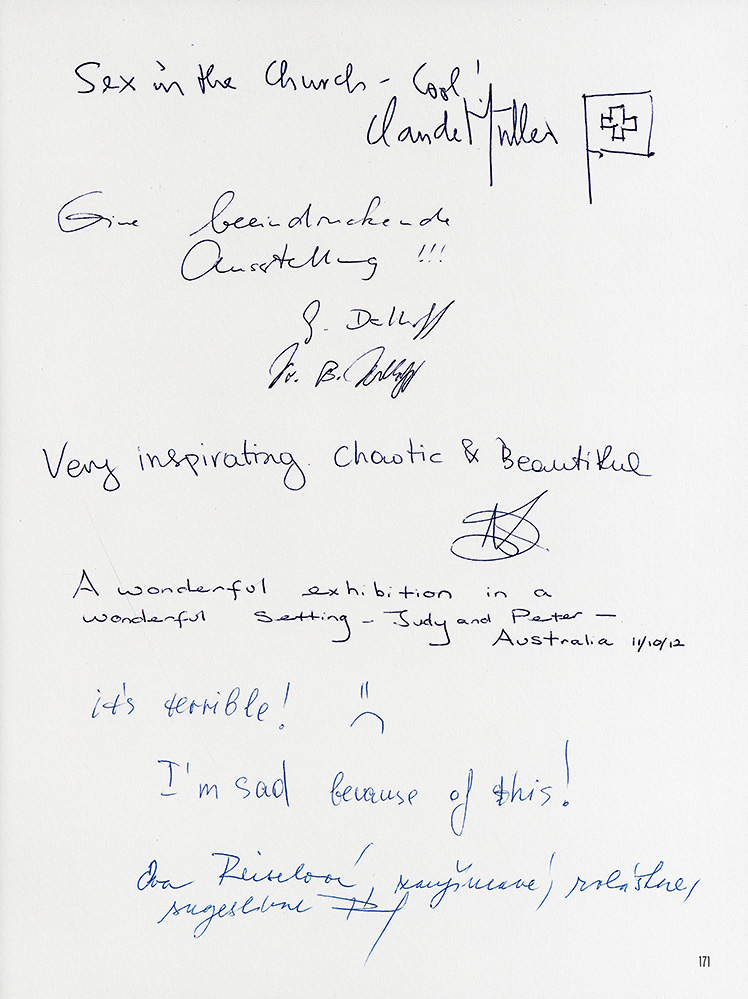 Sex in the Church – Cool!
Claude Müller
Eine beeindruckende
Ausstellung !!!
Very inspirating. Chaotic & Beautiful
A wonderful exhibition in a
wonderful setting – Judy and Peter –
Australia 11/10/12
it's terrible! :(
I'm sad because of this!
zaujímavé, zvláštne,
sugestívne
171